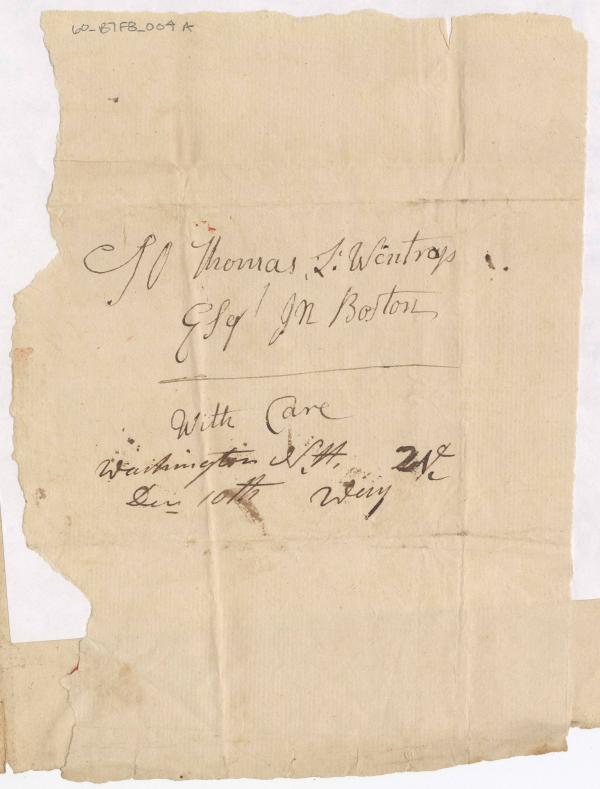 60-B7FB-004A
To Thomas L: Wentrop
Esqr In Boston
With Care
Washington N.H.
Decm 10th Way